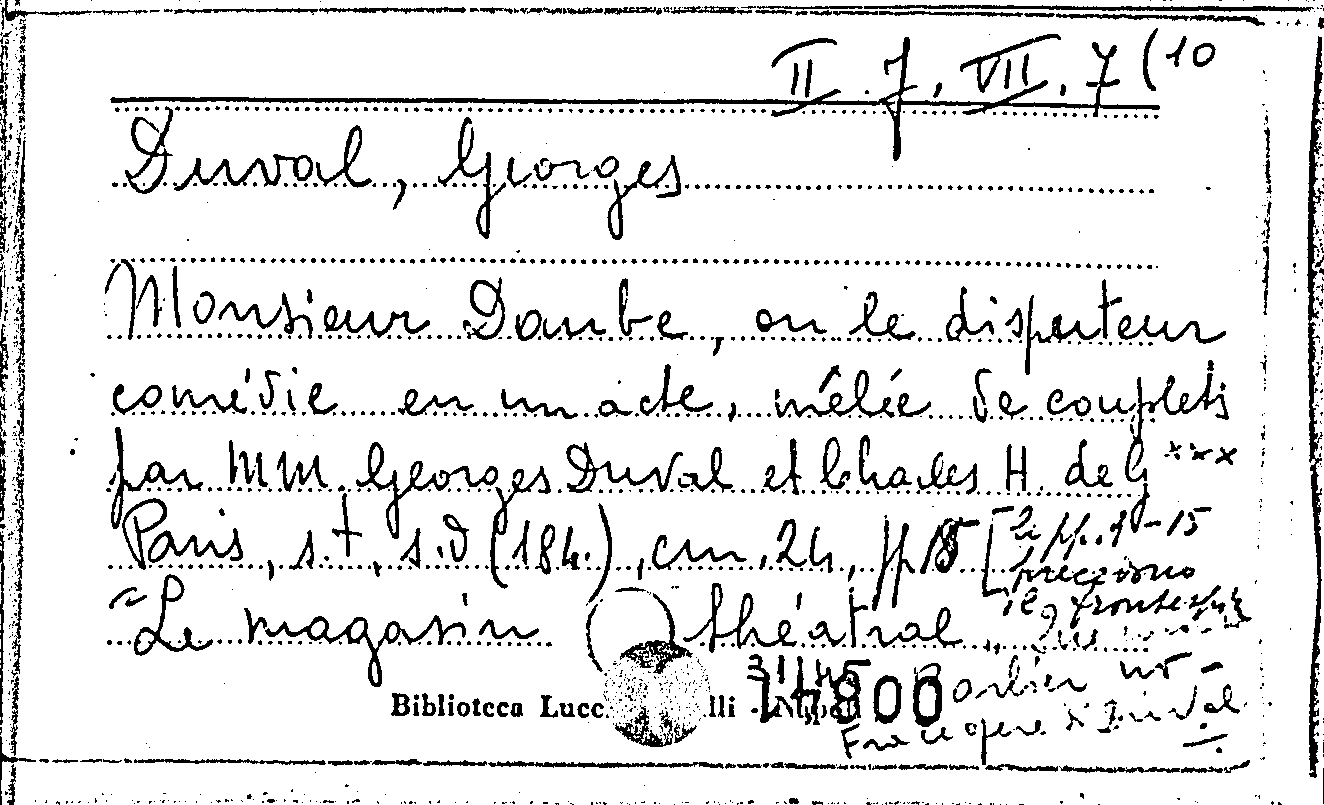 II. 7. VII. 7 (10
Duval, Georges
Monsieur Daube, ou le disputeur
comédie en un acte, mêlée de couplets
par MM. Georges Duval et Charles H. de G ***
Paris, s.t., s.d (184.), cm. 24, pp 15 [le pp. 1-15
precedono
il frontespiz
"Le magasin théatral"
31145
14800
Biblioteca Lucc lli - Napoli
Fra le opere di Duval